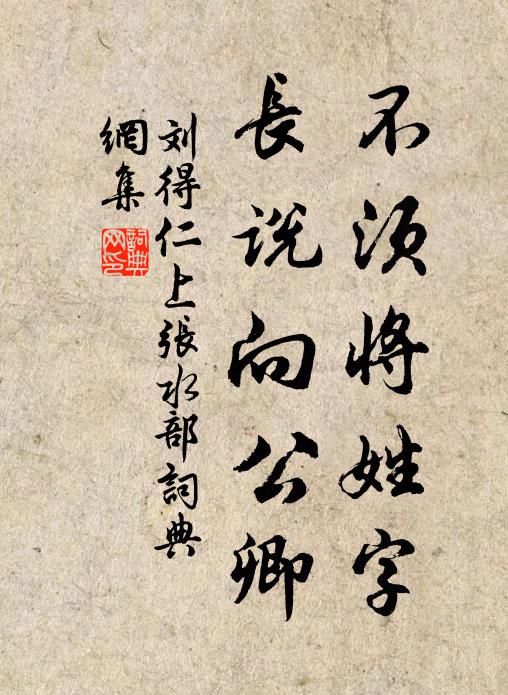 不须将姓字
長説向公卿
刘得仁上張水部詞典
網集
詞典
网印